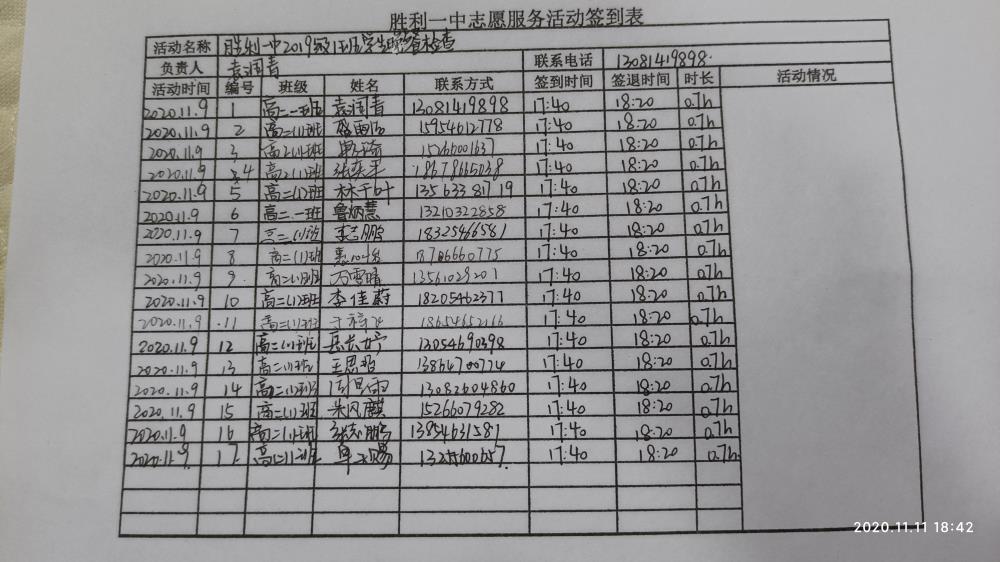 胜利一中志愿服务活动签到表
活动名称 胜利一中2019级1班学生晚餐检查
负责人 袁润青 联系电话 13081419898.
活动时间 编号 班级 姓名 联系方式 签到时间 签退时间 时长 活动情况
2020.11.9 1 高二一班 袁润青 13081419898 17:40 18:20 0.7h
2020.11.9 2 高二(1)班 15954612778 17:40 18:20 0.7h
2020.11.9 3 高二(1)班 17:40 18:20 0.7h
2020.11.9 4 高二(1)班 18678665038 17:40 18:20 0.7h
2020.11.9 5 高二(1)班 林千叶 13563381719 17:40 18:20 0.7h
2020.11.9 6 高二一班 鲁炳慧 13210322858 17:40 18:20 0.7h
2020.11.9 7 高二(1)班 18325466581 17:40 18:20 0.7h
2020.11.9 8 高二(1)班 17:40 18:20 0.7h
2020.11.9 9 高二(1)班 万雪晴 13561029201 17:40 18:20 0.7h
2020.11.9 10 高二(1)班 李佳蔚 18205462377 17:40 18:20 0.7h
2020.11.9 11 高二(1)班 17:40 18:20 0.7h
2020.11.9 12 高二(1)班 13054690398 17:40 18:20 0.7h
2020.11.9 13 高二(1)班 13864700774 17:40 18:20 0.7h
2020.11.9 14 高二(1)班 13082604860 17:40 18:20 0.7h
2020.11.9 15 高二(1)班 朱凤麒 15266079282 17:40 18:20 0.7h
2020.11.9 16 高二(1)班 张志鹏 13854631581 17:40 18:20 0.7h
2020.11.9 17 高二(1)班 17:40 18:20 0.7h
2020.11.11 18:42